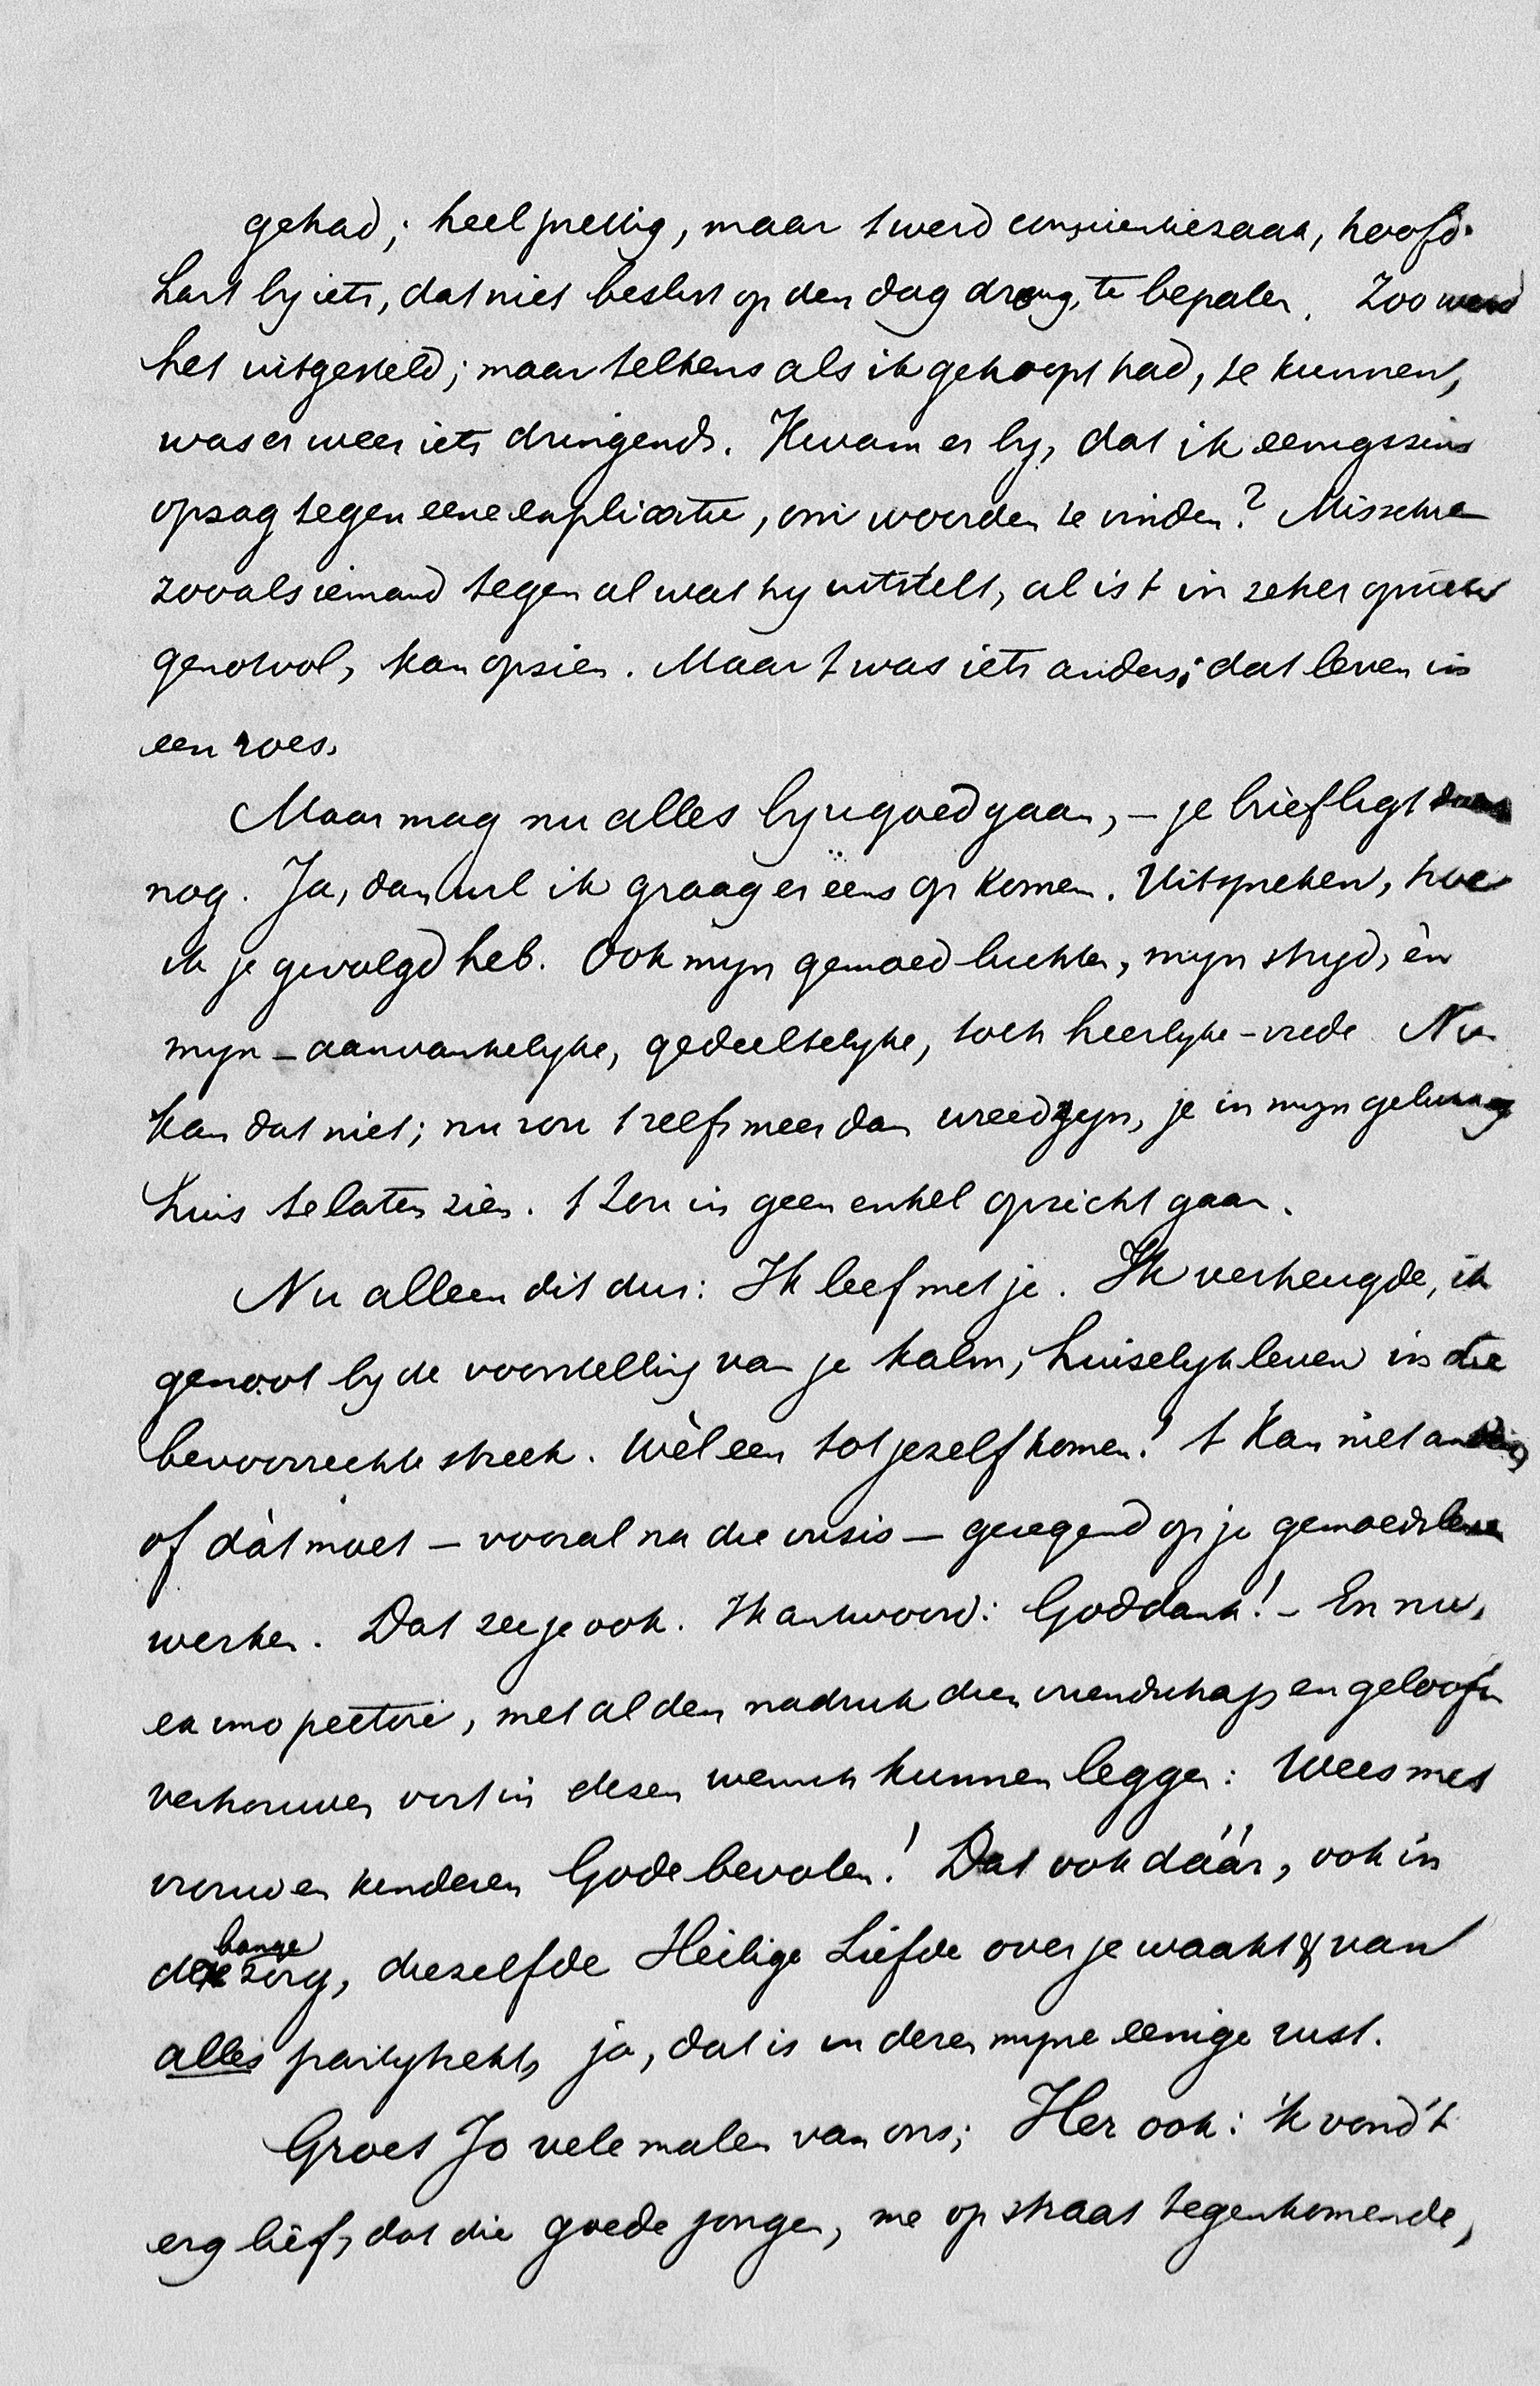 gehad; heel prettig, maar t werd conscientiezaak, hoofd.
hart by iets, dat niet beslist op den dag drong, te bepalen. Zoo werd
het uitgesteld; maar telkens als ik gehoopt had, te kunnen,
was er weer iets dringends. Kwam er by, dat ik eenigszins
opzag tegen eene explicatie, om woorden te vinden? Misschien
zooals iemand tegen al wat hy uitstelt, al is t in zeker opzicht
genotvol, kan opzien. Maar t was iets anders; dat leven in
een roes.
Maar mag nu alles by u goed gaan, – je brief ligt daar
nog. Ja, dan wil ik graag er eens op komen. Uitspreken, hoe
ik je gevolgd heb. Ook myn gemoed luchten, myn stryd, èn
myn – aanvankelyke, gedeeltelyke, toch heerlyke – vrede. Nu
kan dat niet; nu zou t zelfs meer dan wreed zyn, je in myn
huis te laten zien. t Zou in geen enkel opzicht gaan.
Nu alleen dit dus: Ik leef met je. Ik verheugde, ik
genoot by de voorstelling van je kalm, huiselyk leven in die
bevoorrechte streek. Wèl een tot jezelf komen! t Kan niet anders,
of dàt moet – vooral na die crisis – gezegend op je gemoedsleven
werken. Dat zeg je ook. Ik antwoord: Goddank! – En nu,
ex imo pectore, met al den nadruk dien vriendschap en geloofs
vertrouwen ooit in dezen wensch kunnen leggen: Wees met
vrouw en kinderen Gode bevolen! Dat ook dáár, ook in
bange
deze zorg, diezelfde Heilige Liefde over je waakt & van
alles party trekt, ja, dat is in dezen myne eenige rust.
Groet Jo vele malen van ons; Her ook: 'k vond 't
erg lief, dat die goede jongen, me op straat tegenkomende,